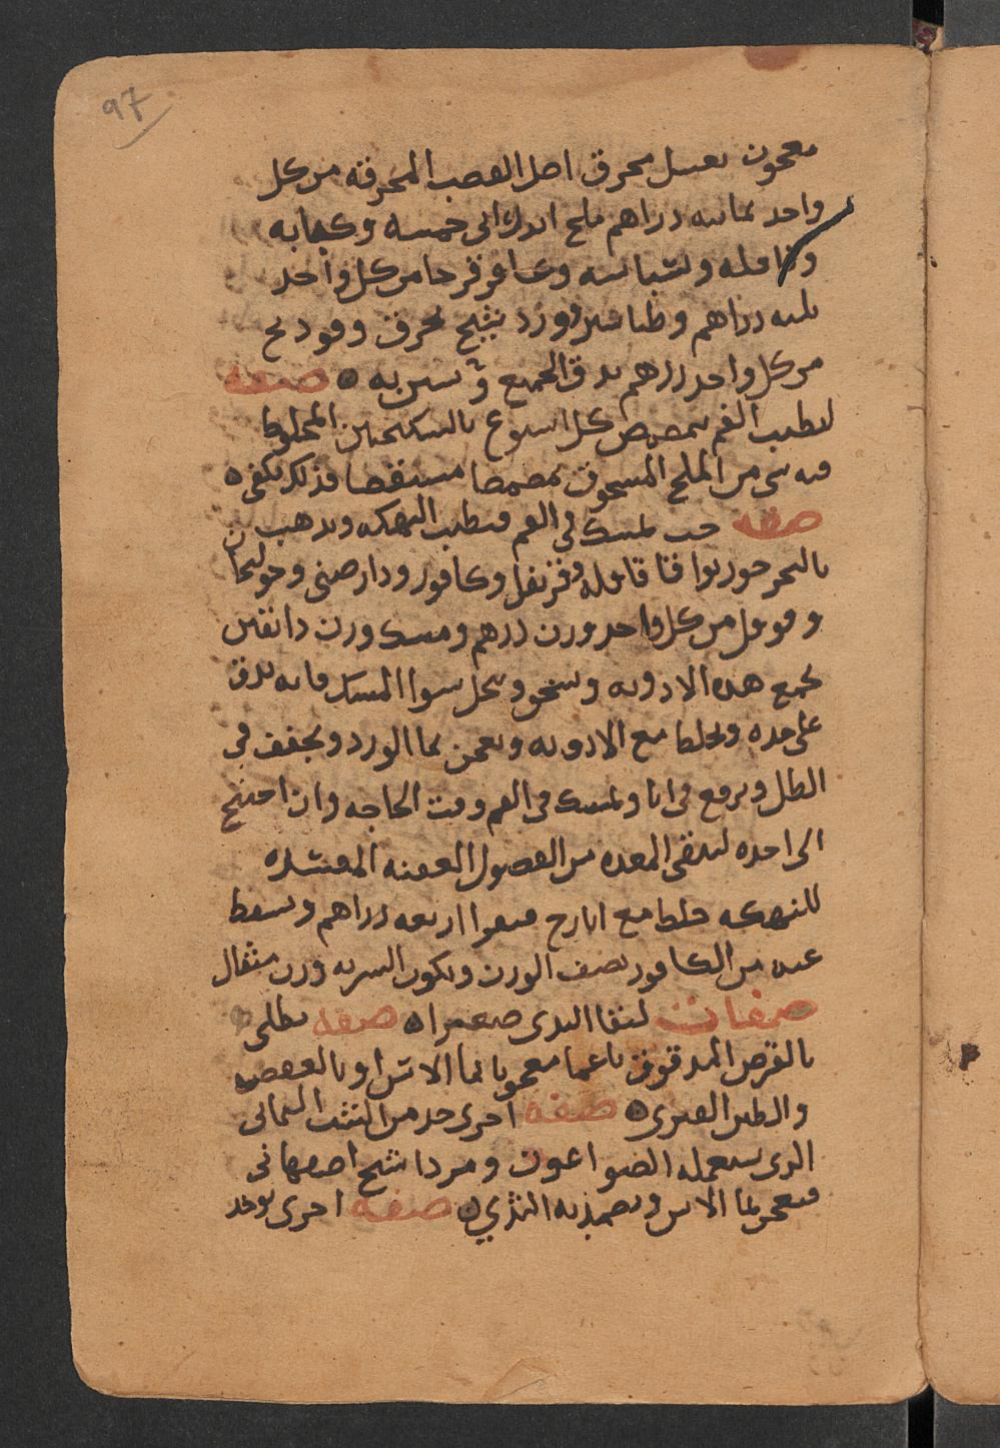 ٩٧
معجون بعسل محرق اصل القصب المحرقه من كل
واحد ثمانيه دراهم ملح اندرانى خمسه وكبابه
وقاقله وبسباسه وعاقرقرحا من كل واحد
ثلثه دراهم وطباشير وورد شيح محرق وفودنج
من كل واحد درهم يدق الجميع ويستن به ه صفه
لتطيب الفم يتمضمض كل اسبوع بالسكنجبين المخلوط
فيه شى من الملح المسحوق تمضمضا مستقصا فذلك يكفى ه
صفه حب يمسك فى الفم فيطيب النهكه ويذهب
بالبخر جوزبوا قاقله وقرنفل وكافور ودارصينى وخولنجان
وفوفل من كل واحد وزن درهم ومسك وزن دانقين
تجمع هذه الادويه وتسحق وتنخل سوا المسك فانه يدق
على حده ويخلط مع الادويه ويعجن بما الورد ويجفف فى
الظل ويرفع فى انا ويمسك فى الفم وقت الحاجه وان احتيج
الى اخذه لينقى المعده من الفصول العفنه المفسده
للنهكه خلط مع ايارج فيقرا اربعه دراهم ويسقط
عنه من الكافور نصف الوزن ويكون الشربه وزن مثقال
صفات لبقا الثدى صغيرا ه صفه يطلى
بالقرص المدقوق ناعما معجونا بما الاس او بالعفص
والطين القبرى ه صفه اخرى خذ من الشب اليمانى
الذى يستعمله الصواغون ومرداشنج اصبهانى
فيعجن بما الاس ويضمد به الثدي ه صفه اخرى يوخذ